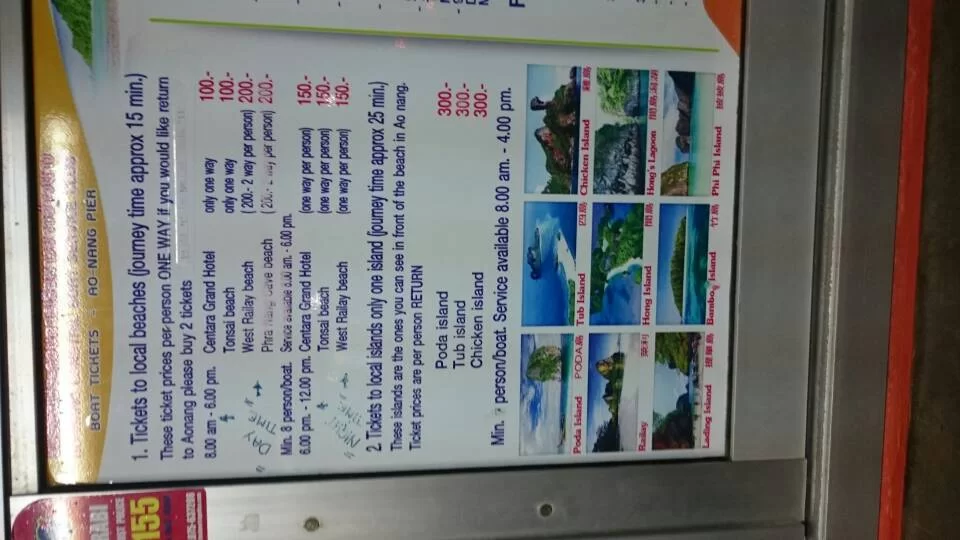 BOAT TICKETS - AO-NANG PIER
1. Tickets to local beaches (journey time approx 15 min.)
These ticket prices per person ONE WAY if you would like return
to Aonang please buy 2 tickets
8.00 am - 6.00 pm. Centara Grand Hotel only one way 100.-
Tonsai beach only one way 100.-
West Railay beach ( 200.- 2 way per person) 200.-
"DAY TIME" Phra Nang Cave beach ( 200.- 2 way per person) 200.-
Min. 8 person/boat. Service available 8.00 am. - 6.00 pm.
6.00 pm. - 12.00 pm. Centara Grand Hotel (one way per person) 150.-
Tonsai beach (one way per person) 150.-
"NIGHT TIME" West Railay beach (one way per person) 150.-
2. Tickets to local islands only one island (journey time approx 25 min.)
These islands are the ones you can see in front of the beach in Ao nang.
Ticket prices are per person RETURN
Poda island 300.-
Tub island 300.-
Chicken island 300.-
Min. person/boat. Service available 8.00 am. - 4.00 pm.
Poda Island PODA島 Tub Island 四島 Chicken Island 雞島
Railay 萊利 Hong Island Hong's Lagoon
Lading Island Bamboo Island 竹島 Phi Phi Island 披披島
155